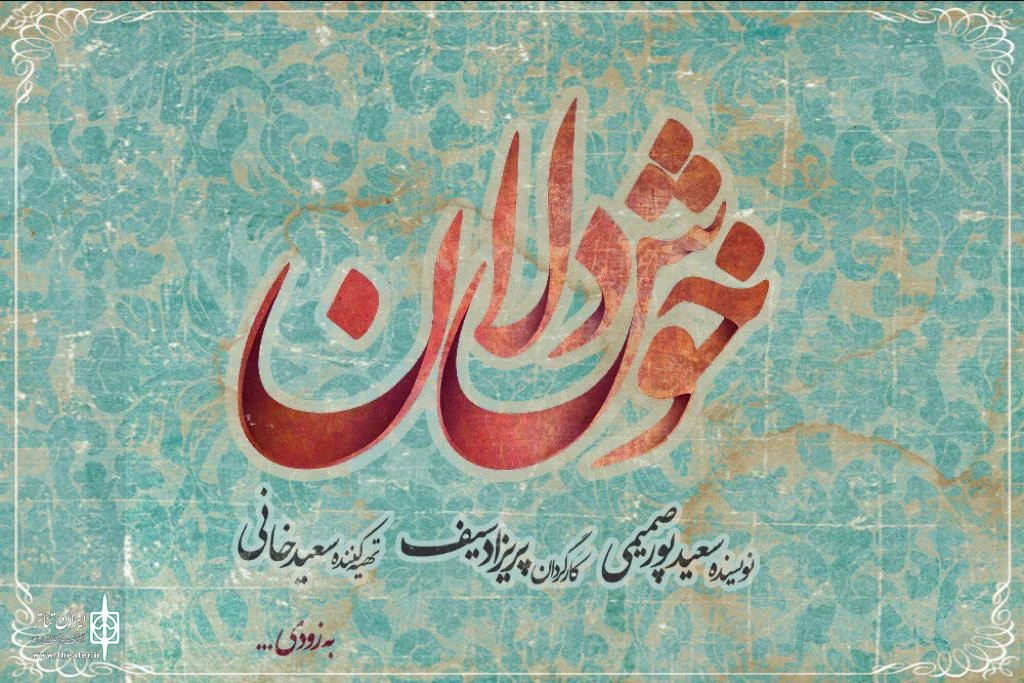 خوش‌دلان
نویسنده سعید پورصمیمی کارگردان پریزاد سیف تهیه‌کننده سعید خانی
به زودی ...
ایران تئاتر
www.Theater.ir